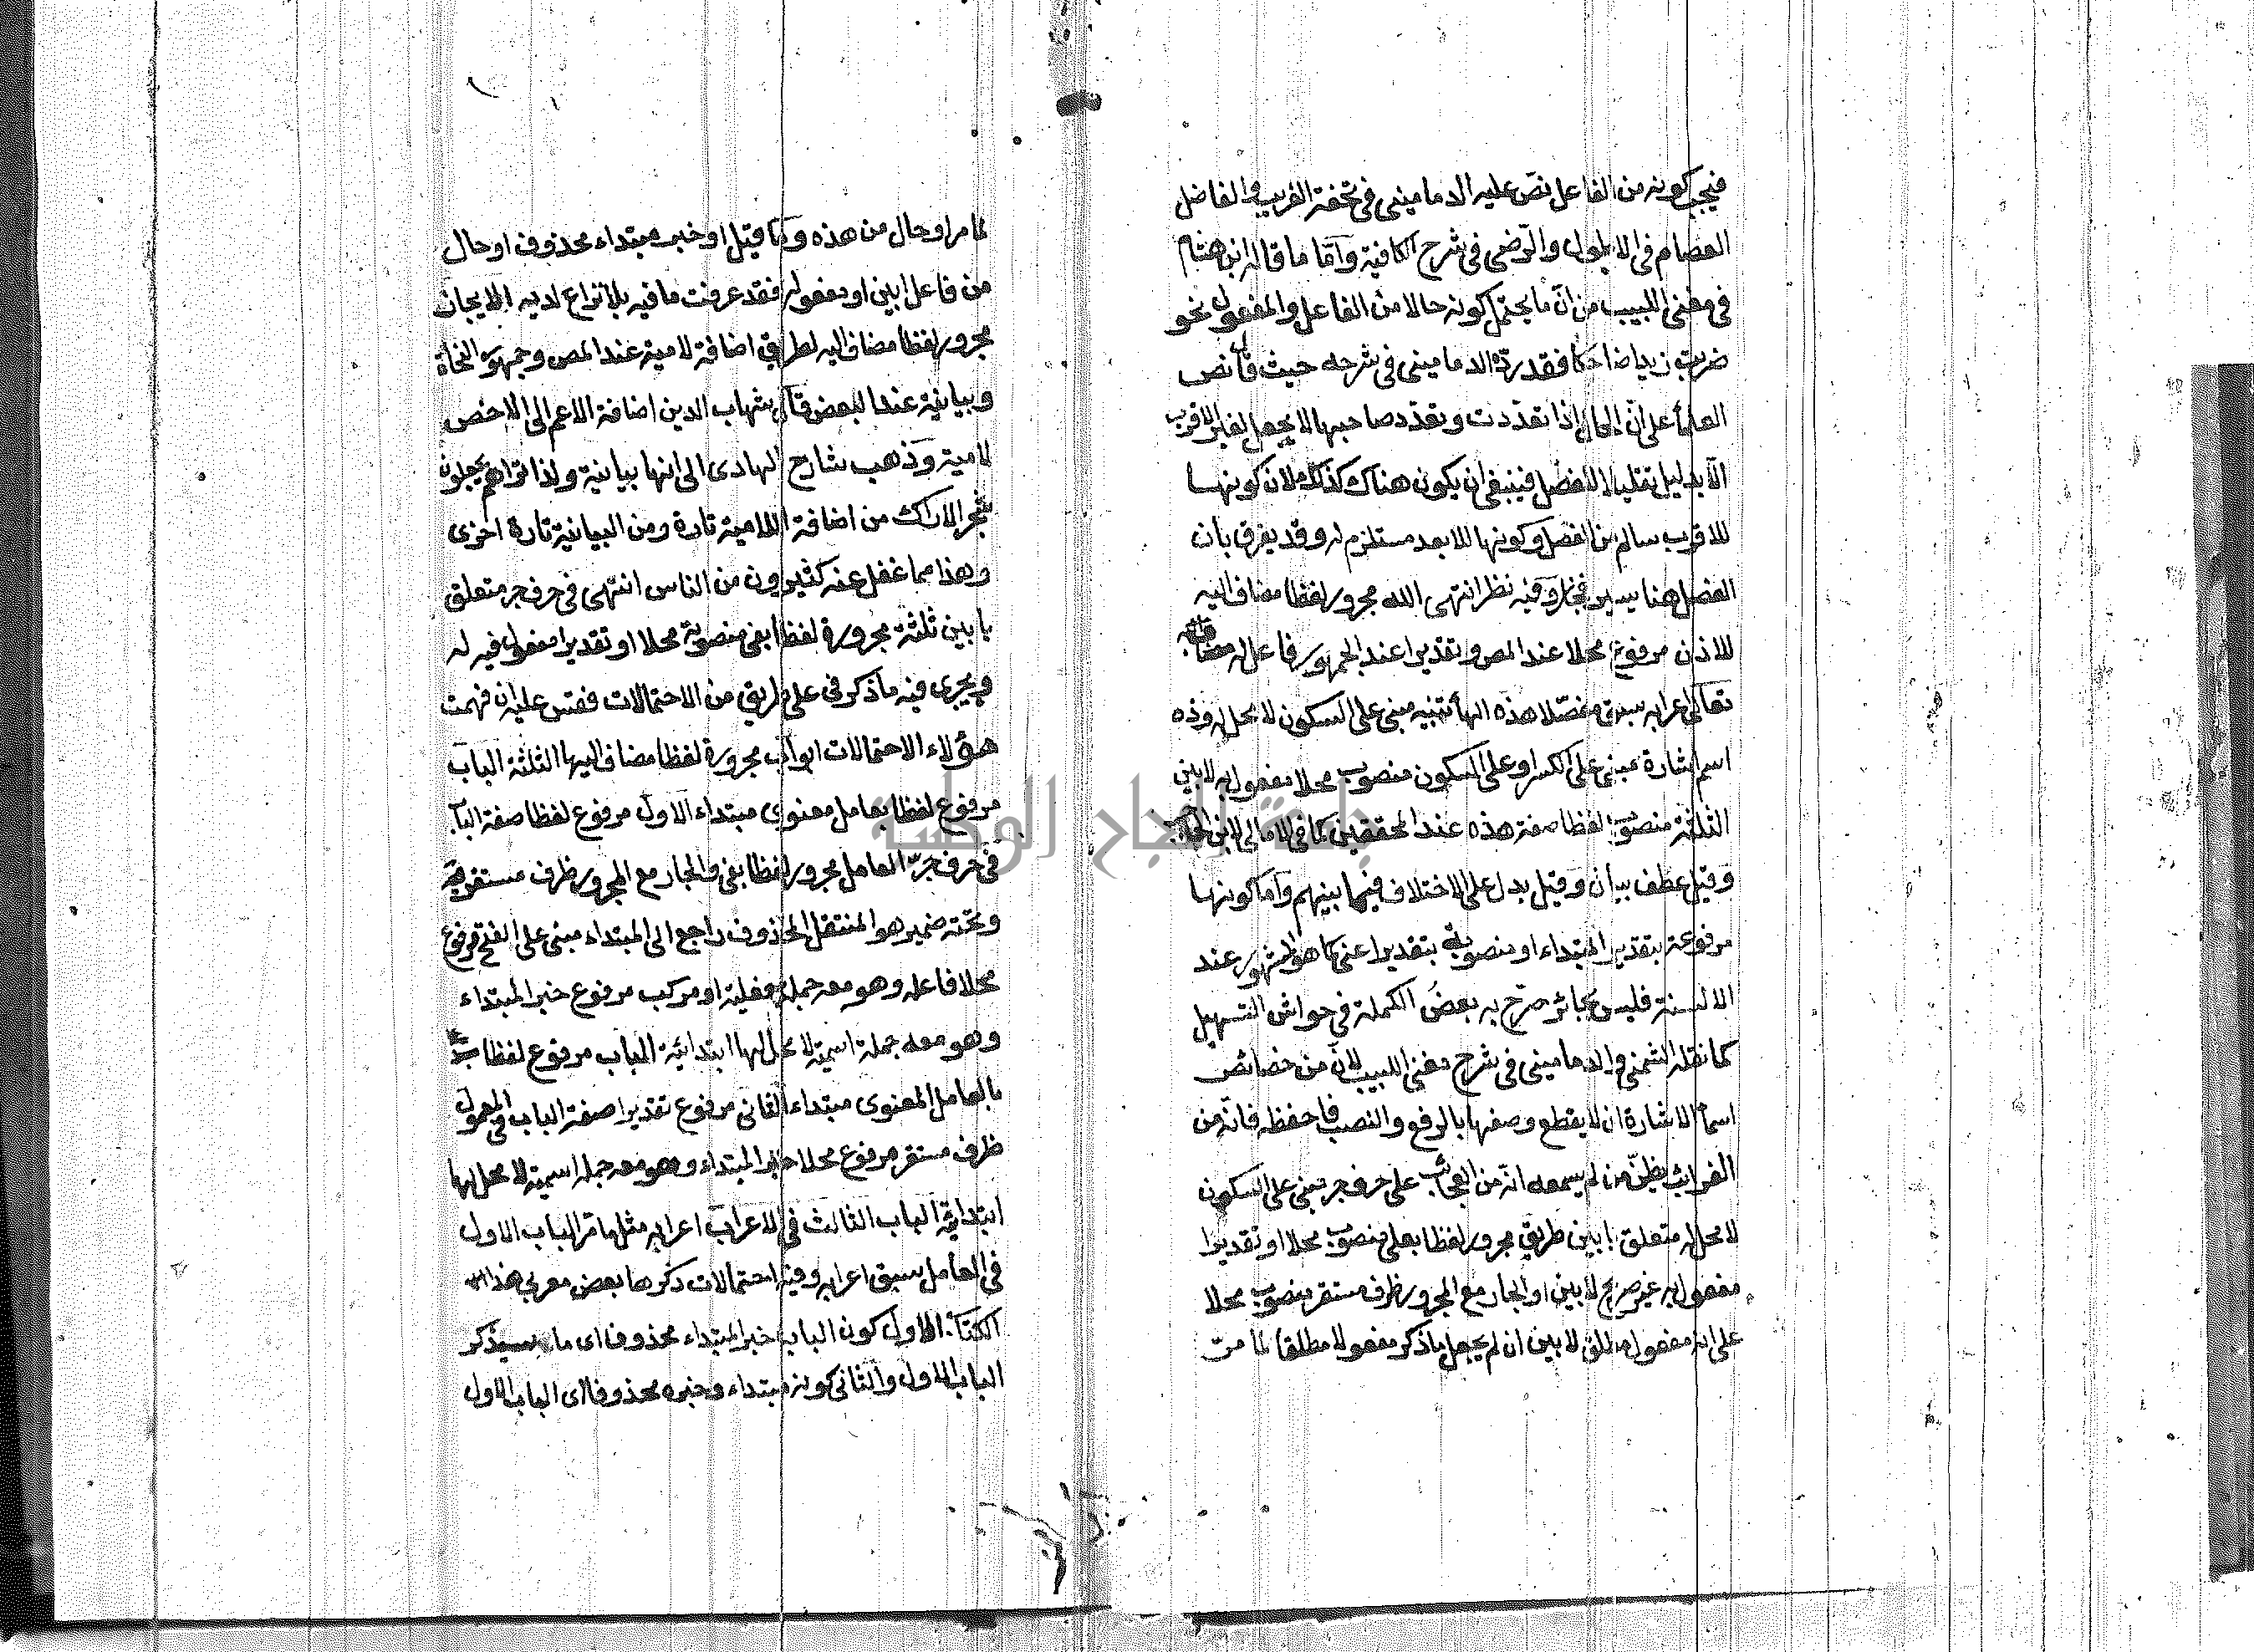 فيجب كونه من الفاعل نصّ عليه الدمامينى فى تحفة الغريب والفاضل
العصام فى الاطول والرّضى فى شرح الكافية وأمّا ما قاله ابن هشام
فى مغنى اللبيب من انّ ما يحتمل كونه حالا من الفاعل والمفعول نحو
ضربت زيدا ضاحكا فقد ردّه الدمامينى فى شرحه حيث قال نص
العلماء على انّ الحال اذا تعدّدت وتعدّد صاحبها لا يجعل لغير الاقرب
الّا بدليل تقليلا للفصل فينبغى ان يكون هناك كذلك لان كونها
للاقرب سالم من الفصل وكونها للابعد مستلزم له وقد يفرق بان
الفصل هنا يسير وفيه نظر انتهى الله مجرور لفظا مضاف اليه
للاذن مرفوع محلا عند المص وتقديرا عند الجمهور فاعل له
تعالى اعرابه سبق مفصّلا هذه الهاء تنبيه مبنى على السكون لا محل له وذه
اسم اشارة مبنى على الكسر او على السكون منصوب محلا مفعول به لابين
الثلثة منصوب لفظا صفة هذه عند المحققين كما فى الامالى لابن الحاجب
وقيل عطف بيان وقيل بدل على الاختلاف فيما بينهم وأما كونها
مرفوعة بتقدير المبتداء او منصوبة بتقدير اعنى كما هو المشهور عند
الالسنة فليس بجائز صرّح به بعض الكملة فى حواش التسهيل
كما نقله الشمنى والدمامينى فى شرح مغنى اللبيب لانّ من خصائص
اسماء الاشارة ان لا يقطع وصفها بالرفع والنصب فاحفظه فانّه من
الغرائب يظنّ من لم يسمعه انّه من العجائب على حرف جر مبنى على السكون
لا محل له متعلق بابين طريق مجرور لفظا بعلى منصوب محلا او تقديرا
مفعول به غير صريح لابين او الجار مع المجرور ظرف مستقر منصوب محلا
على انه مفعول مطلق لابين ان لم يجعل ما ذكر مفعولا مطلقا لما مرّ
لما مر او حال من هذه وكما قيل او خبر مبتداء محذوف او حال
من فاعل ابين او مفعوله فقد عرفت ما فيه بلا نزاع لديه الايجاز
مجرور لفظا مضاف اليه لطريق اضافة لامية عند المص وجمهور النحاة
وبيانية عند البعض قال شهاب الدين اضافة الاعم الى الاخص
لامية وذهب شارح الهادى الى انها بيانية ولذا تراهم يجعلون
شجر الاراك من اضافة اللامية تارة ومن البيانية تارة اخرى
وهذا مما غفل عنه كثيرون من الناس انتهى فى حرف جر متعلق
بابين ثلثة مجرورة لفظا بفى منصوبة محلا او تقديرا مفعول فيه له
ويجرى فيه ما ذكر فى على طريق من الاحتمالات فقس عليه ان فهمت
هؤلاء الاحتمالات ابواب مجرورة لفظا مضاف اليها الثلثة الباب
مرفوع لفظا بعامل معنوى مبتداء الاول مرفوع لفظا صفة الباب
فى حرف جرّ العامل مجرور لفظا بفى والجار مع المجرور ظرف مستقر
وتحته ضمير هو المنتقل المحذوف راجع الى المبتداء مبنى على الفتح مرفوع
محلا فاعله وهو معه جملة فعلية او مركب مرفوع خبر المبتداء
وهو معه جملة اسمية لا محل لها ابتدائية الباب مرفوع لفظا
بالعامل المعنوى مبتداء الثانى مرفوع تقديرا صفة الباب فى المعمول
ظرف مستقر مرفوع محلا خبر المبتداء وهو معه جملة اسمية لا محل لها
ابتدائية الباب الثالث فى الاعراب اعرابه مثل ما مر الباب الاول
فى العامل سبق اعرابه وفيه احتمالات ذكرها بعض معربى هذا
الكتاب الاول كون الباب خبر المبتداء محذوف اى ما سيذكر
الباب الاول والثانى كونه مبتداء وخبره محذوفا اى الباب الاول
جامعة النجاح الوطنية